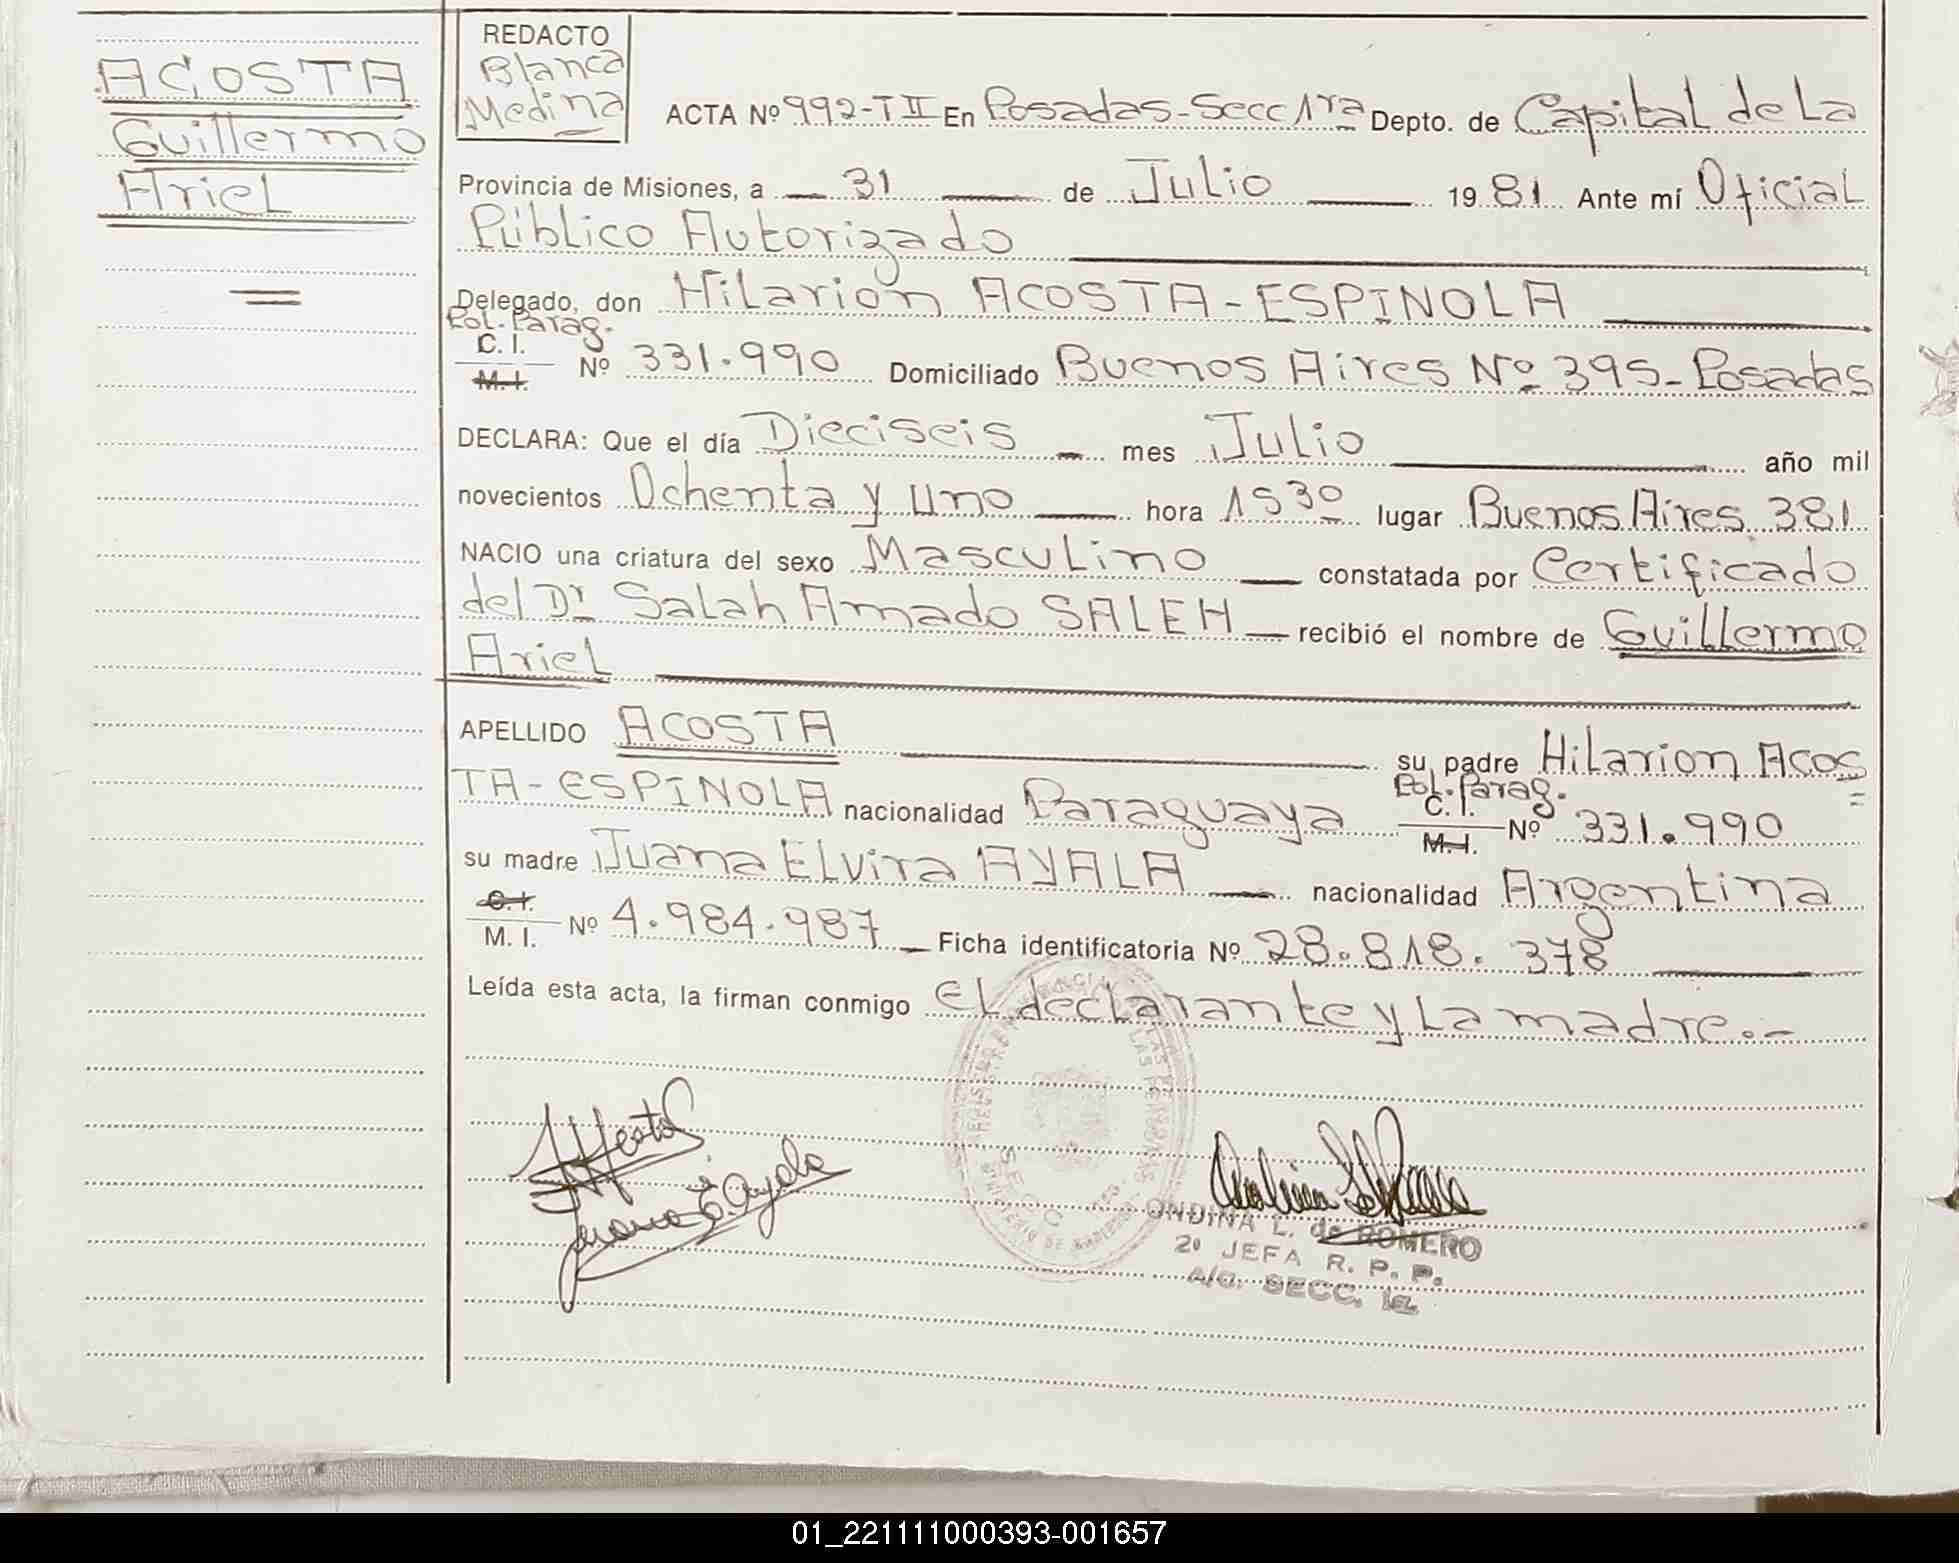 ACOSTA
Guillermo
Ariel
REDACTO
Blanca
Medina
ACTA Nº 992-TII En Posadas-Secc 1ra Depto. de Capital de La
Provincia de Misiones, a 31 de Julio 1981 Ante mí Oficial
Público Autorizado
Delegado, don Hilarion ACOSTA-ESPINOLA
Pol. Parag.
C. I.
M. I.
Nº 331.990 Domiciliado Buenos Aires Nº 395- Posadas
DECLARA: Que el día Dieciseis mes Julio año mil
novecientos Ochenta y uno hora 1530 lugar Buenos Aires 381
NACIO una criatura del sexo Masculino constatada por Certificado
del Dr Salah Amado SALEH recibió el nombre de Guillermo
Ariel
APELLIDO ACOSTA su padre Hilarion Acos
TA-ESPINOLA nacionalidad Paraguaya Pol. Parag. C. I. M. I. Nº 331.990
su madre Juana Elvira AYALA nacionalidad Argentina
C. I.
M. I.
Nº 4.984.987 Ficha identificatoria Nº 28.818.378
Leída esta acta, la firman conmigo el declarante y La madre.-
Juana E. Ayala
ONDINA L. de ROMERO
2º JEFA R. P. P.
A/C. SECC. 1a.
01_221111000393-001657